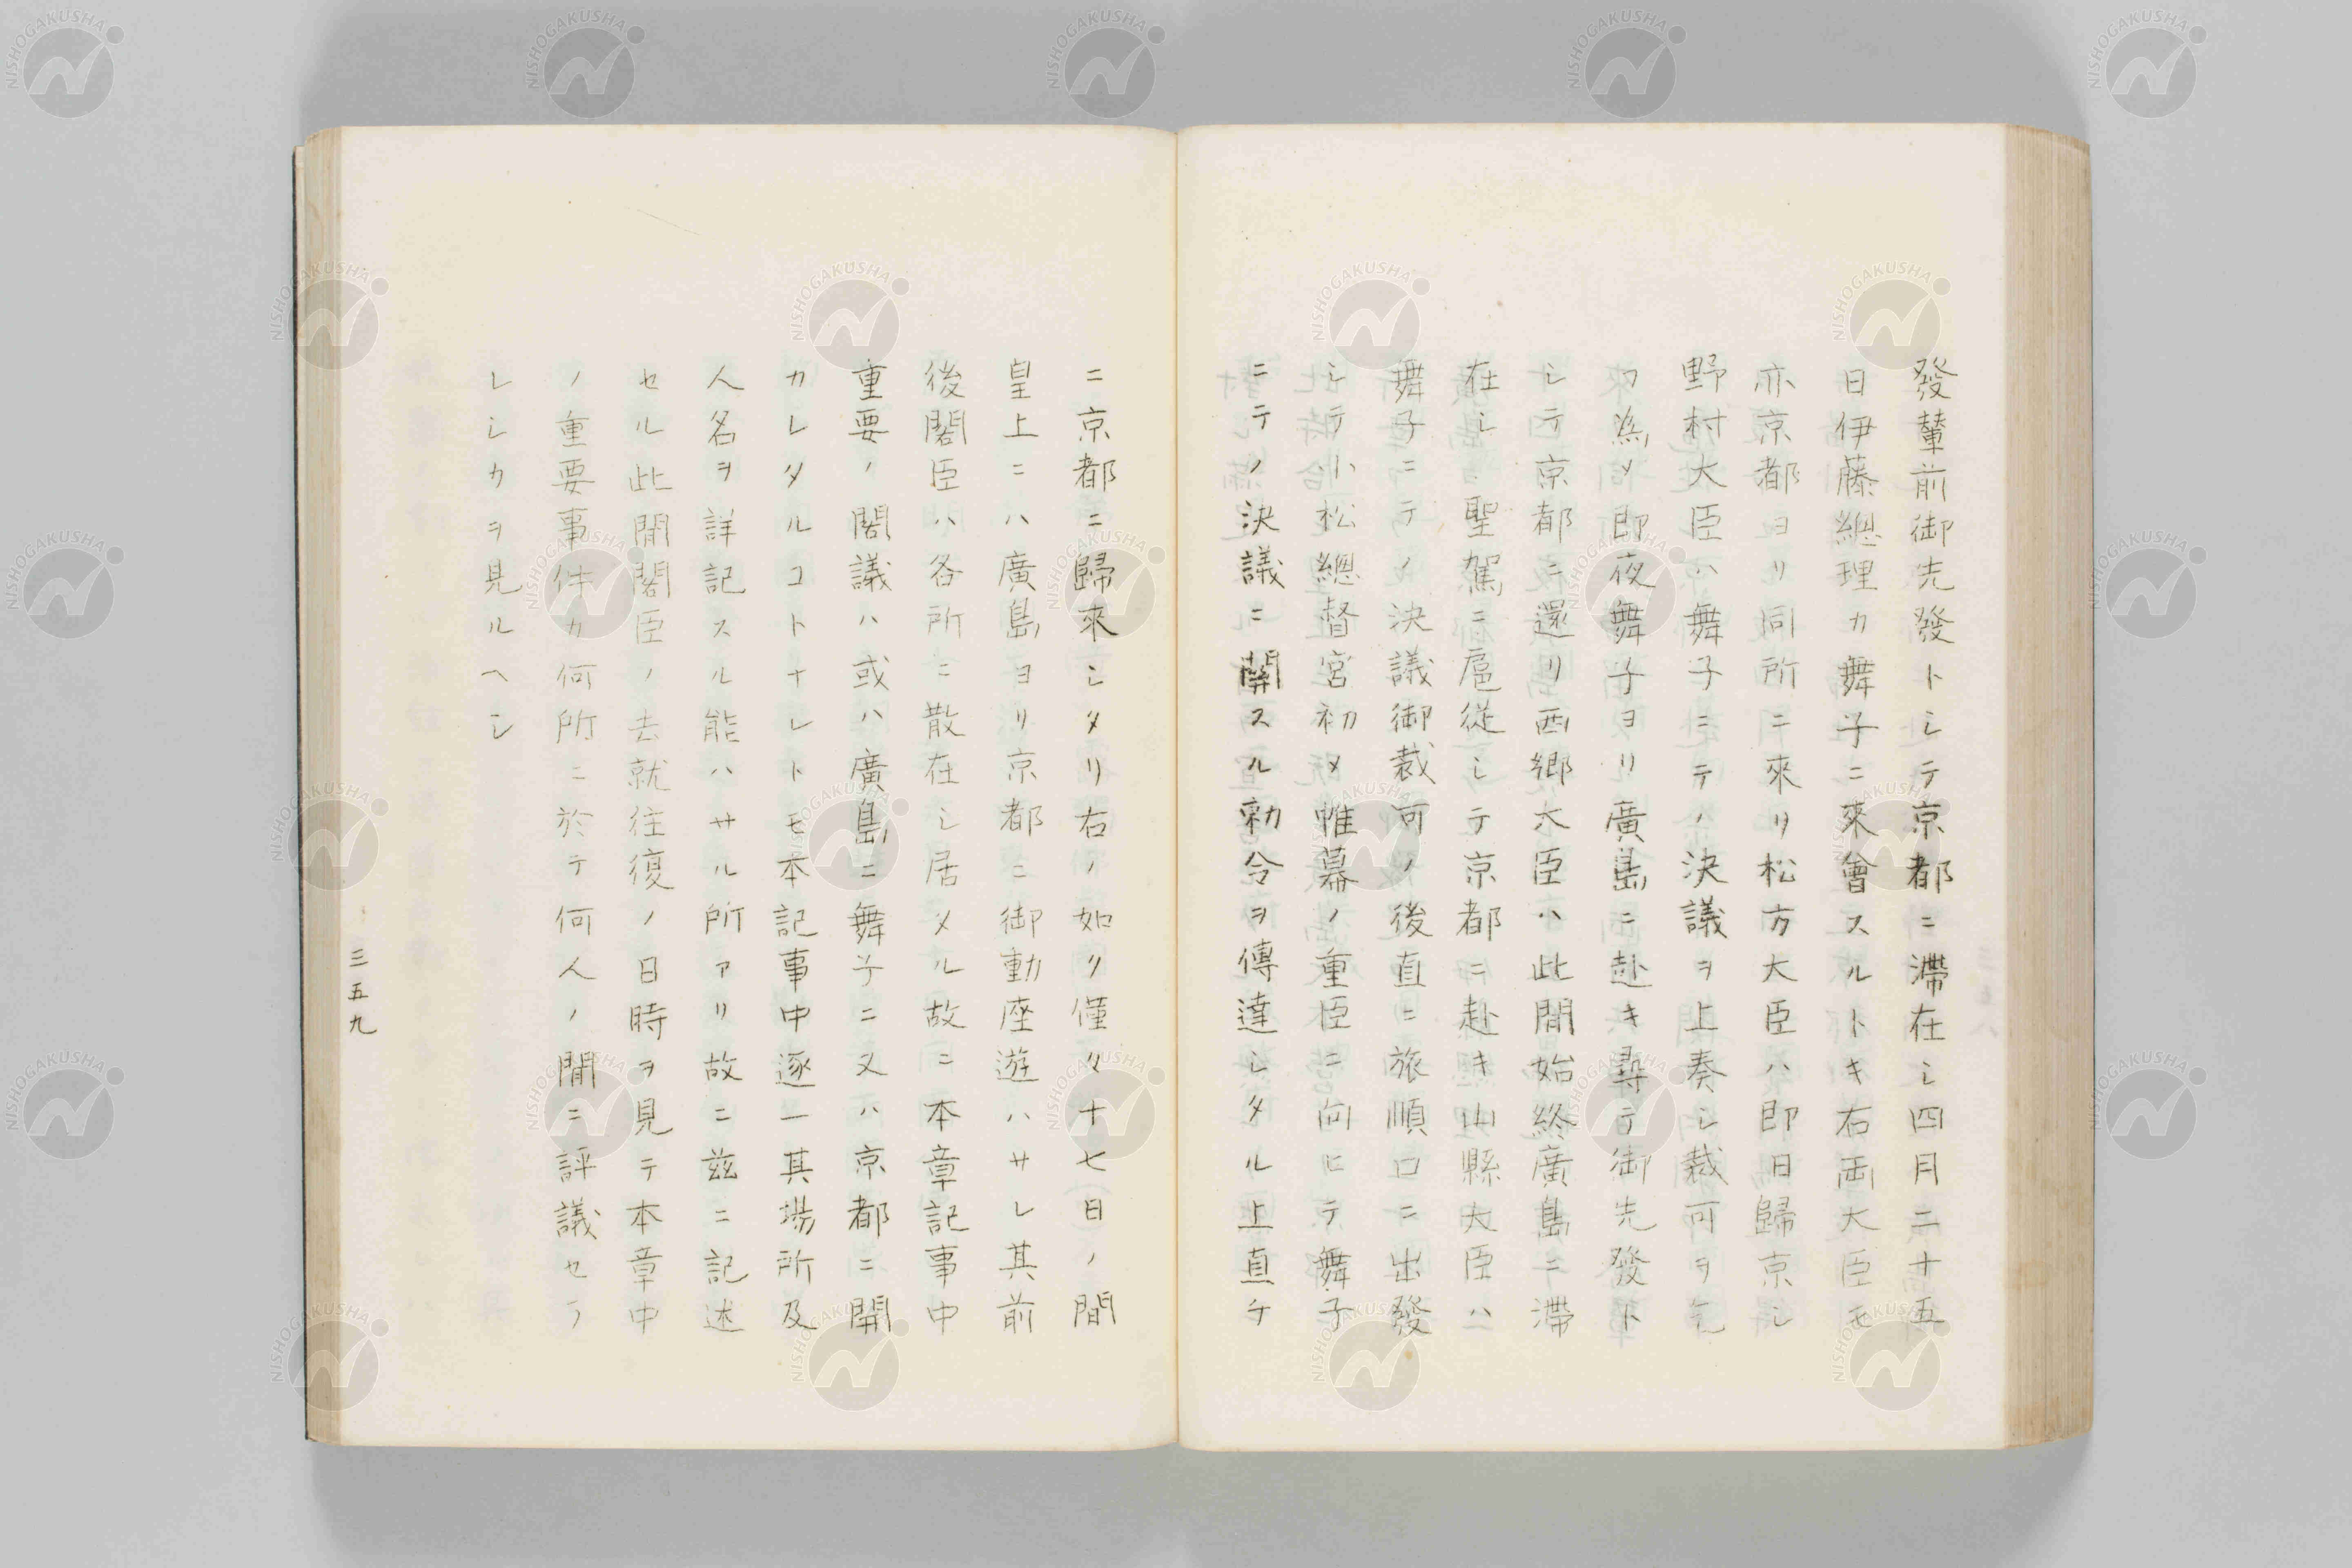 發輦前御先發トシテ京都ニ滯在シ四月二十五
日伊藤總理カ舞子ニ來會スルトキ右両大臣モ
亦京都ヨリ同所ニ來リ松方大臣ハ即日歸京シ
野村大臣ハ舞子ニテノ決議ヲ上奏シ裁可ヲ乞
フ為メ即夜舞子ヨリ廣島ニ赴キ尋テ御先發ト
シテ京都ニ還リ西郷大臣ハ此間始終廣島ニ滯
在シ聖駕ニ扈從シテ京都ニ赴キ山縣大臣ハ
舞子ニテノ決議御裁可ノ後直ニ旅順口ニ出發
シテ小松總督宮初メ帷幕ノ重臣ニ向ヒテ舞子
ニテノ決議ニ關スル勅令ヲ傳達シタル上直チ
ニ京都ニ歸來シタリ右ノ如ク僅々十七日ノ間
皇上ニハ廣島ヨリ京都ニ御動座遊ハサレ其前
後閣臣ハ各所ニ散在シ居メル故ニ本章記事中
重要ノ閣議ハ或ハ廣島ニ舞子ニ又ハ京都ニ開
カレタルコトナレトモ本記事中逐一其場所及
人名ヲ詳記スル能ハサル所アリ故ニ茲ニ記述
セル此間閣臣ノ去就往復ノ日時ヲ見テ本章中
ノ重要事件カ何所ニ於テ何人ノ間ニ評議セラ
レシカヲ見ルヘシ
三五九
NISHOGAKUSHA